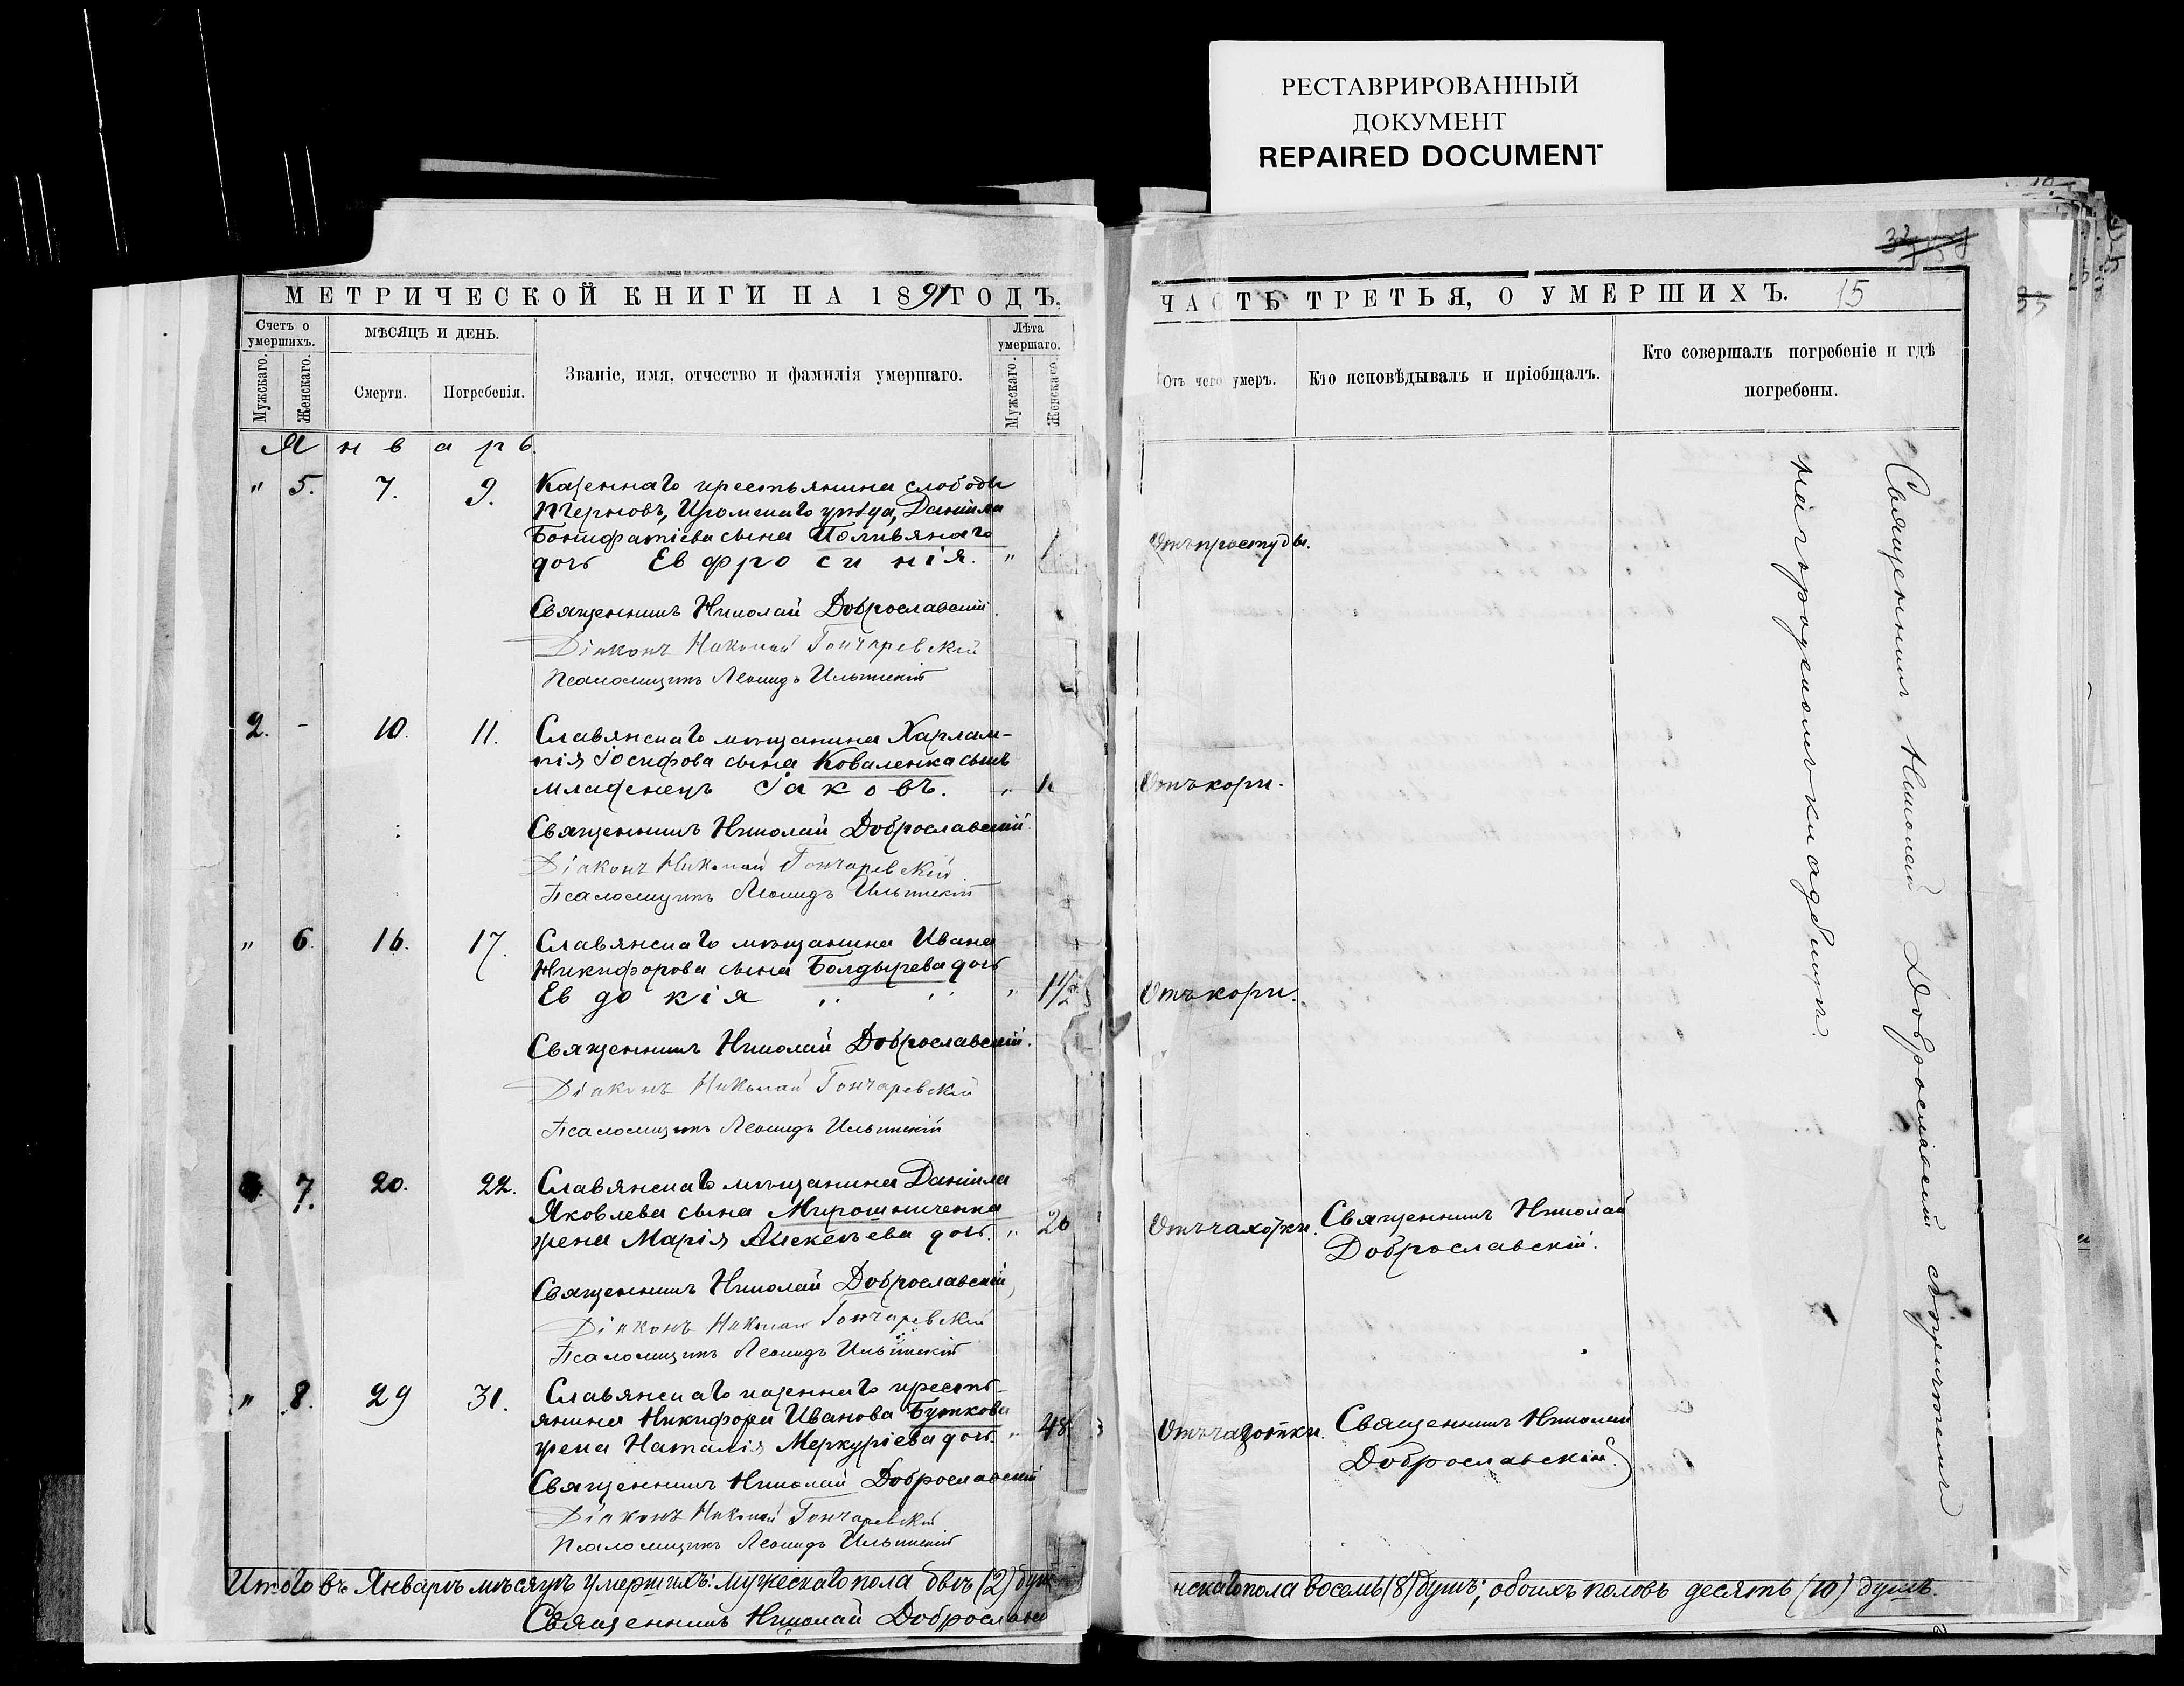 РЕСТАВРИРОВАННЫЙ
ДОКУМЕНТ
REPAIRED DOCUMENT
МЕТРИЧЕСКОЙ КНИГИ НА 1891 ГОДЪ,
Счетъ о умершихъ.
Мужскаго.
Женскаго.
МѢСЯЦЪ И ДЕНЬ.
Смерти.
Погребенія.
Званіе, имя, отчество и фамилія умершаго.
Лѣта умершаго.
Мужскаго.
Женскаго.
Январь.
" 5. 7. 9. Казеннаго крестьянина слободы
уѣзда, Даніила
Бонифатіева сына Поливянаго
дочь Евфросинія. "
Священникъ Николай Доброславскій
Діаконъ Николай Гончаревскій
Псаломщикъ Леонидъ
2. - 10. 11. Славянскаго мѣщанина Харлам-
пія Іосифова сына Коваленка сынъ
младенецъ Іаковъ.
Священникъ Николай Доброславскій
Діаконъ Николай Гончаревскій
Псаломщикъ Леонидъ
" 6. 16. 17. Славянскаго мѣщанина Ивана
Никифорова сына Болдырева дочь
Евдокія " 1 1/2
Священникъ Николай Доброславскій.
Діаконъ Николай Гончаревскій
Псаломщикъ Леонидъ
7. 20. 22. Славянскаго мѣщанина Даніила
Яковлева сына Мирошниченка
жена Марія Алексѣева дочь. " 26
Священникъ Николай Доброславскій
Діаконъ Николай Гончаревскій
Псаломщикъ Леонидъ
" 8. 29 31. Славянскаго казеннаго кресть-
янина Никифора Иванова Буткова
жена Наталія Меркуріева дочь. " 48
Священникъ Николай Доброславскій
Діаконъ Николай Гончаревскій
Псаломщикъ Леонидъ
Итого въ Январѣ мѣсяцѣ умершихъ: мужескаго пола двѣ (2) душ
Священникъ Николай Доброславс
ЧАСТЬ ТРЕТЬЯ, О УМЕРШИХЪ. 15
Отъ чего умеръ.
Кто исповѣдывалъ и пріобщалъ.
Кто совершалъ погребеніе и гдѣ погребены.
Отъ простуды.
Отъ кори.
Отъ кори.
Отъ чахотки. Священникъ Николай
Доброславскій.
Отъ чахотки. Священникъ Николай
Доброславскій.
Священникъ Николай Доброславскій съ причтомъ
на городскомъ кладбищѣ.
нскаго пола восемь (8) душъ; обоихъ половъ десять (10) душъ.